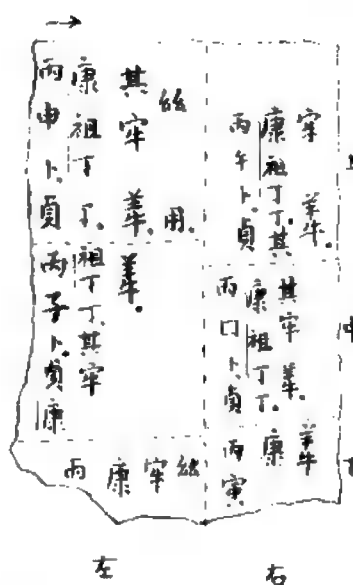 丙申卜、貞
康祖丁丁、
其牢羊牛、
玆用.
丙子卜、貞康
祖丁丁其牢
羊牛.
丙
康
牢
玆
丙午卜、貞
康祖丁丁、其
牢羊牛.
丙口卜、貞
康祖丁丁、
其牢羊牛.
丙寅
康
羊牛
左
右